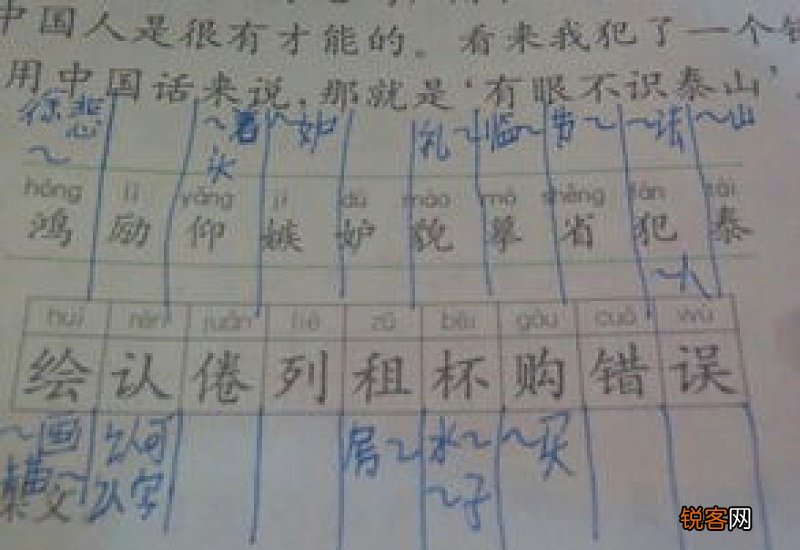 中国人是很有才能的。看来我犯了一个
用中国话来说，那就是‘有眼不识泰山’
徐悲～ ～着头 ～妒 礼～ 临～ 节～ ～法 ～山
hóng lì yǎng jí dù mào mó shěng fàn tài
鸿 励 仰 嫉 妒 貌 摹 省 犯 泰
～人
huì rèn juàn liè zū bēi gòu cuò wù
绘 认 倦 列 租 杯 购 错 误
～画 认何 房～ 水～ ～买
描～ 认字 ～子
锐客网